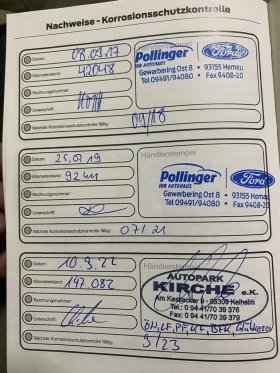 Nachweise - Korrosionsschutzkontrolle
Datum: 08.09.17
Kilometerstand: 42048
Rechnungsnummer:
Unterschrift:
Nächste Korrosionsschutzkontrolle fällig: 09/18
Pollinger
IHR AUTOHAUS
Ford
Gewerbering Ost 8 • 93155 Hemau
Tel 09491/94080 • Fax 9408-20
Händlerstempel
Datum: 25.07.19
Kilometerstand:
Rechnungsnummer:
Unterschrift:
Nächste Korrosionsschutzkontrolle fällig: 07/21
Pollinger
IHR AUTOHAUS
Ford
Gewerbering Ost 8 • 93155 Hemau
Tel. 09491/94080 • Fax 9408-20
Händlerstempel
Datum: 10.9.22
Kilometerstand: 147082
Rechnungsnummer:
Unterschrift:
Nächste Korrosionsschutzkontrolle fällig: 9/23
AUTOPARK
KIRCHE e.K.
Am Kastlacker 9 - 93309 Kelheim
Tel. 0 94 41/70 39 376
Fax 0 94 41/70 39 379